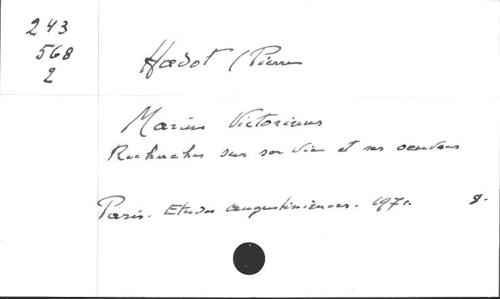 243
568
2
Hadot (Pierre
Marius Victorinus
Recherches sur sa vie et ses oeuvres
Paris. Etudes augustiniennes. 1971. 8.